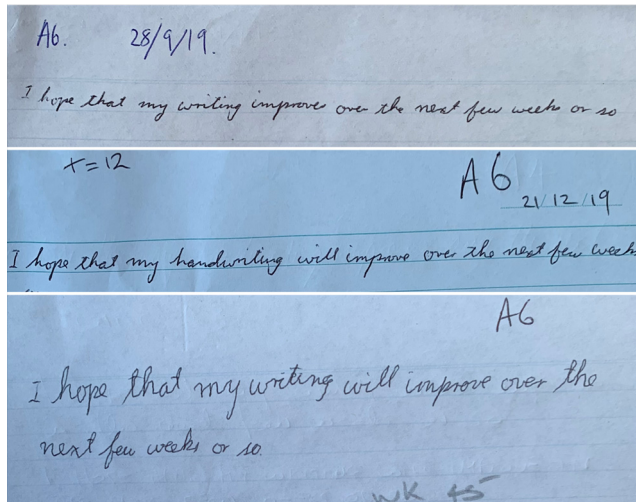 A6. 28/9/19.
I hope that my writing improves over the next few weeks or so
t=12 A6
21/12/19
I hope that my handwriting will improve over the next few weeks
A6
I hope that my writing will improve over the
next few weeks or so.
WK 45